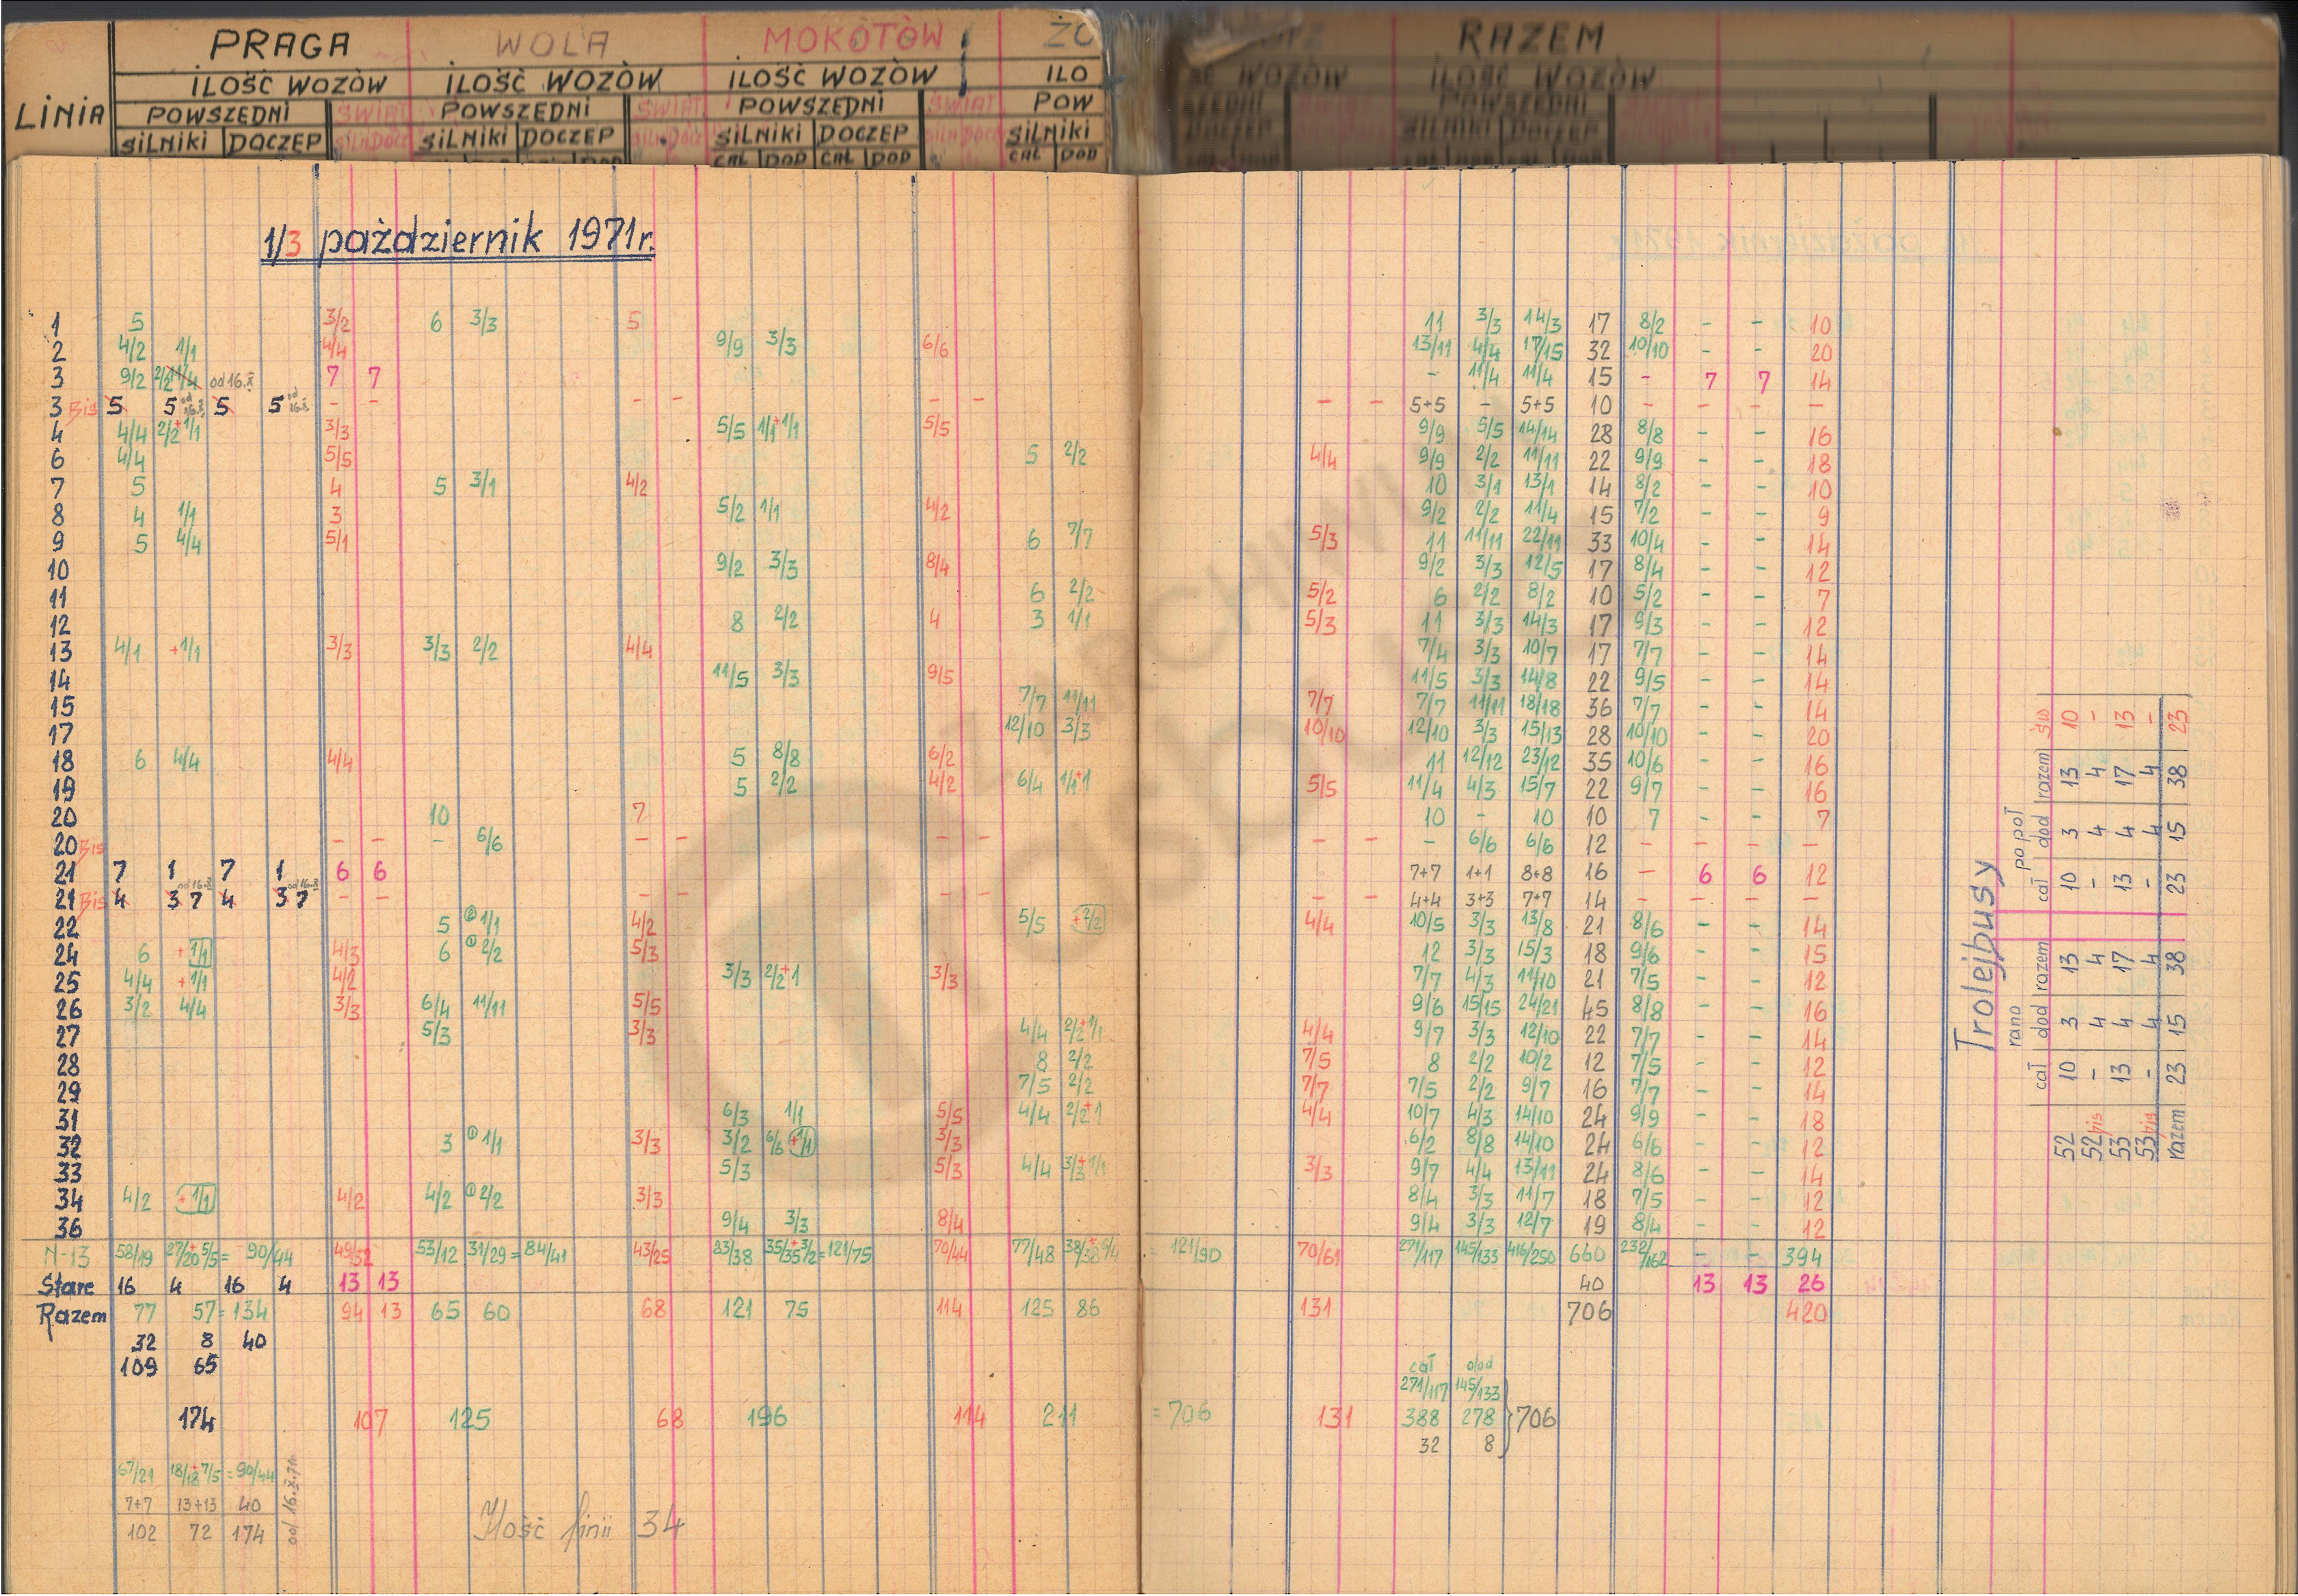 PRAGA WOLA MOKOTÒW ŻO RAZEM
LINIA ILOŚĆ WOZÒW ILOŚĆ WOZÒW ILOŚĆ WOZÒW ILO WOZÒW ILOŚĆ WOZÒW
POWSZEDNI ŚWIĄT POWSZEDNI ŚWIĄT POWSZEDNI ŚWIĄT POW POWSZEDNI
SILNIKI DOCZEP SILNIKI DOCZEP SILNIKI DOCZEP SILNIKI DOCZEP
CAŁ DOD CAŁ DOD CAŁ DOD
1/3 październik 1971r.
1 5 3/2 6 3/3 5 11 3/3 14/3 17 8/2 - - 10
2 4/2 1/1 4/4 9/9 3/3 6/6 13/11 4/4 17/15 32 10/10 - - 20
3 9/2 2/2 11/4 od 16.X 7 7 - 11/4 11/4 15 - 7 7 14
3 Bis 5 5 od 16.X 5 5 od 16.X - - - - - - - - 5+5 - 5+5 10 - - - -
4 4/4 2/2+1/1 3/3 5/5 1/1+1/1 5/5 9/9 5/5 14/14 28 8/8 - - 16
6 4/4 5/5 5 2/2 4/4 9/9 2/2 11/11 22 9/9 - - 18
7 5 4 5 3/1 4/2 10 3/1 13/1 14 8/2 - - 10
8 4 1/1 3 5/2 1/1 4/2 9/2 2/2 11/4 15 7/2 - - 9
9 5 4/4 5/1 6 7/7 5/3 11 11/11 22/11 33 10/4 - - 14
10 9/2 3/3 8/4 9/2 3/3 12/5 17 8/4 - - 12
11 6 2/2 5/2 6 2/2 8/2 10 5/2 - - 7
12 8 2/2 4 3 1/1 5/3 11 3/3 14/3 17 9/3 - - 12
13 4/1 +1/1 3/3 3/3 2/2 4/4 7/4 3/3 10/7 17 7/7 - - 14
14 11/5 3/3 9/5 11/5 3/3 14/8 22 9/5 - - 14
15 7/7 11/11 7/7 7/7 11/11 18/18 36 7/7 - - 14
17 12/10 3/3 10/10 12/10 3/3 15/13 28 10/10 - - 20
18 6 4/4 4/4 5 8/8 6/2 11 12/12 23/12 35 10/6 - - 16
19 5 2/2 4/2 6/4 1/1+1 5/5 11/4 4/3 15/7 22 9/7 - - 16
20 10 7 10 - 10 10 7 - - 7
20 Bis - - - 6/6 - - - - - - - 6/6 6/6 12 - - - -
21 7 1 7 1 6 6 7+7 1+1 8+8 16 - 6 6 12
21 Bis 4 3 7 od 16.X 4 3 7 od 16.X - - - - - - - - 4+4 3+3 7+7 14 - - - -
22 5 ② 1/1 4/2 5/5 +2/2 4/4 10/5 3/3 13/8 21 8/6 - - 14
24 6 +1/1 4/3 6 ① 2/2 5/3 12 3/3 15/3 18 9/6 - - 15
25 4/4 +1/1 4/2 3/3 2/2+1 3/3 7/7 4/3 11/10 21 7/5 - - 12
26 3/2 4/4 3/3 6/4 11/11 5/5 9/6 15/15 24/21 45 8/8 - - 16
27 5/3 3/3 4/4 2/2+1/1 4/4 9/7 3/3 12/10 22 7/7 - - 14
28 8 2/2 7/5 8 2/2 10/2 12 7/5 - - 12
29 7/5 2/2 7/7 7/5 2/2 9/7 16 7/7 - - 14
31 6/3 1/1 5/5 4/4 2/2+1 4/4 10/7 4/3 14/10 24 9/9 - - 18
32 3 ① 1/1 3/3 3/2 6/6 +1/1 3/3 6/2 8/8 14/10 24 6/6 - - 12
33 5/3 5/3 4/4 3/3+1/1 3/3 9/7 4/4 13/11 24 8/6 - - 14
34 4/2 +1/1 4/2 4/2 ① 2/2 3/3 8/4 3/3 11/7 18 7/5 - - 12
36 9/4 3/3 8/4 9/4 3/3 12/7 19 8/4 - - 12
N-13 58/19 27/20+5/5= 90/44 49/52 53/12 31/29=84/41 43/25 83/38 35/35+3/2=121/75 70/44 77/48 = 121/90 70/61 271/117 145/133 416/250 660 232/162 - - 394
Stare 16 4 16 4 13 13 40 13 13 26
Razem 77 57=134 94 13 65 60 68 121 75 114 125 86 131 706 420
32 8 40
109 65
cał dod
271/117 145/133
174 107 125 68 196 114 211 =706 131 388 278 } 706
32 8
67/21 18/18+7/5=90/44
7+7 13+13 40
102 72 174
od 16.X.71r.
Ilość linii 34
Trolejbusy
rano po poł
cał dod razem cał dod razem św
52 10 3 13 10 3 13 10
52 bis - 4 4 - 4 4 -
53 13 4 17 13 4 17 13
53 bis - 4 4 - 4 4 -
razem 23 15 38 23 15 38 23